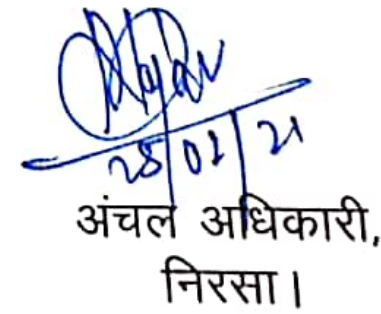 28/01/21
अंचल अधिकारी,
निरसा।